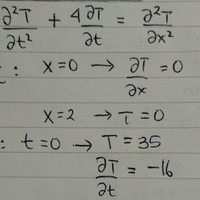 ∂²T/∂t² + 4∂T/∂t = ∂²T/∂x²
: x=0 → ∂T/∂x = 0
x=2 → T=0
: t=0 → T=35
∂T/∂t = -16